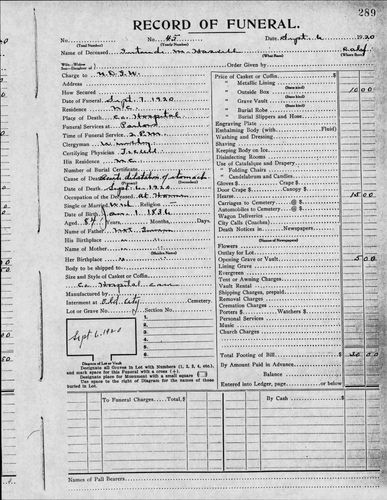 289
RECORD OF FUNERAL.
No. (Total Number) No. 45 (Yearly Number) Date, Sept. 6 1920
Name of Deceased M. Calif.
(What Race) (Where Born)
Wife—Widow
Son—Daughter of
Order Given by
Charge to
Address
How Secured
Date of Funeral Sept. 7, 1920
Residence N.C.
Place of Death Co. Hospital
Funeral Services at Parlors
Time of Funeral Service 2 P.M.
Clergyman
Certifying Physician
His Residence N.C.
Number of Burial Certificate
Cause of Death Acute dilatation of stomach
(Primary) (Secondary)
Date of Death Sept. 6, 1920
Occupation of the Deceased At Home
Single or Married Wid Religion
Date of Birth Jan. 1 1836
Aged 84 Years, Months, Days
Name of Father Not
His Birthplace "
Name of Mother "
(Maiden Name)
Her Birthplace "
Body to be shipped to
Size and Style of Casket or Coffin
Co. Hospital case
Manufactured by
Interment at Old City Cemetery.
Lot or Grave No. Section No.
1
2
3
4
5
6
Sept 6, 1920
Diagram of Lot or Vault
Designate all Graves in Lot with Numbers (1, 2, 3, 4, etc.) and mark space for this Funeral with a cross (+).
Designate place for Monument with a small square
Use space to the right of Diagram for the names of those buried in Lot.
Price of Casket or Coffin
" Metallic Lining
(State kind)
" Outside Box 10 00
(State kind)
" Grave Vault
" Burial Robe
" Burial Slippers and Hose
Engraving Plate
Embalming Body (with Fluid)
Washing and Dressing
Shaving
Keeping Body on Ice
Disinfecting Rooms
Use of Catafalque and Drapery
" Folding Chairs
" Candelabrum and Candles
Gloves $ Crape $
Door Crape $ Canopy $
Hearse 15 00
Carriages to Cemetery @ $
Automobiles to Cemetery @ $
Wagon Deliveries
City Calls (Coaches)
Death Notices in Newspapers
(Names of Newspapers)
Flowers
Outlay for Lot
Opening Grave or Vault 5 00
Lining Grave
Evergreen
Tent or Awning Charges
Vault Rental
Shipping Charges, prepaid
Removal Charges
Cremation Charges
Porters $ Watchers $
Personal Services
Music
Church Charges
Total Footing of Bill $ 30 00
By Amount Paid in Advance
Balance
Entered into Ledger, page or below
To Funeral Charges, Total $ By Cash $
Names of Pall Bearers